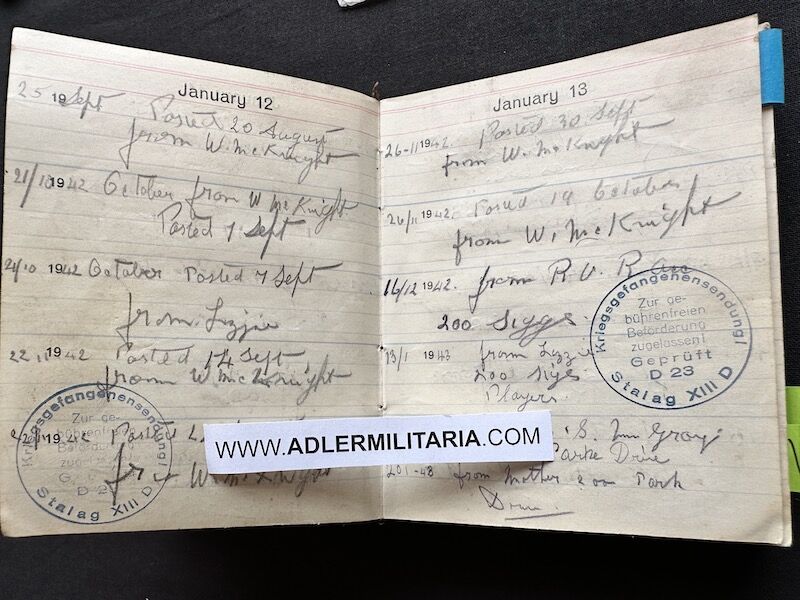 January 12
25 19 Sept Posted 20 August
from W. McKnight
21/10 1942 October from W McKnight
Posted 7 Sept
21/10 1942 October Posted 7 Sept
from Lizzie
22 11 1942 Posted 14 Sept
from W McKnight
1942 Posted
W
Kriegsgefangenensendung!
Zur ge-
bührenfreien
Stalag XIII D
January 13
26-11 1942. Posted 30 Sept
from W. McKnight
26/11 1942. Posted 19 October
from W. McKnight
16/12 1942. from R.V. R
200 Siggs.
13/1 1943 from Lizzie
200 Sigs
Players
S.
Drive
from Mother 200 Park
Drive
Kriegsgefangenensendung!
Zur ge-
bührenfreien
Beförderung
zugelassen!
Geprüft
D 23
Stalag XIII D
WWW.ADLERMILITARIA.COM